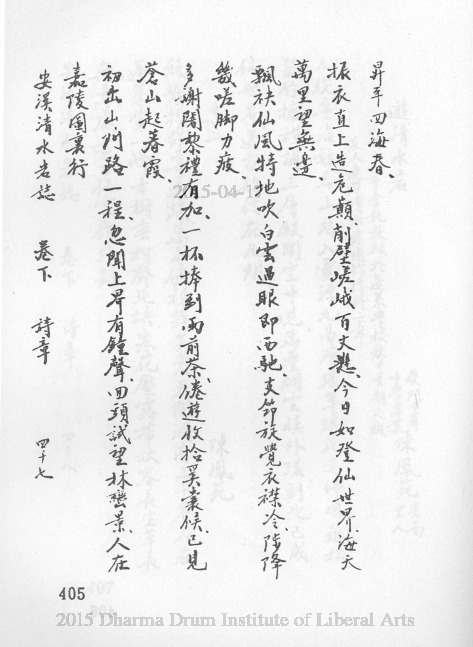 昇平四海春、
振衣直上造危巔、削壁嵯峨百丈懸、今日如登仙世界、海天
萬里望無邊、
飄袂仙風特地吹、白雲過眼即西馳、支節旋覺衣襟冷、陟降
幾嗟脚力疲、
多謝闍黎禮有加、一杯捧到雨前茶、倦遊收拾奚囊候、已見
蒼山起暮霞、
初出山門路一程、忽聞上界有鐘聲、回頭試望林巒景、人在
嘉陵圖裏行
安溪清水岩誌 卷下 詩章 四十七
405
2015-04-1
2015 Dharma Drum Institute of Liberal Arts